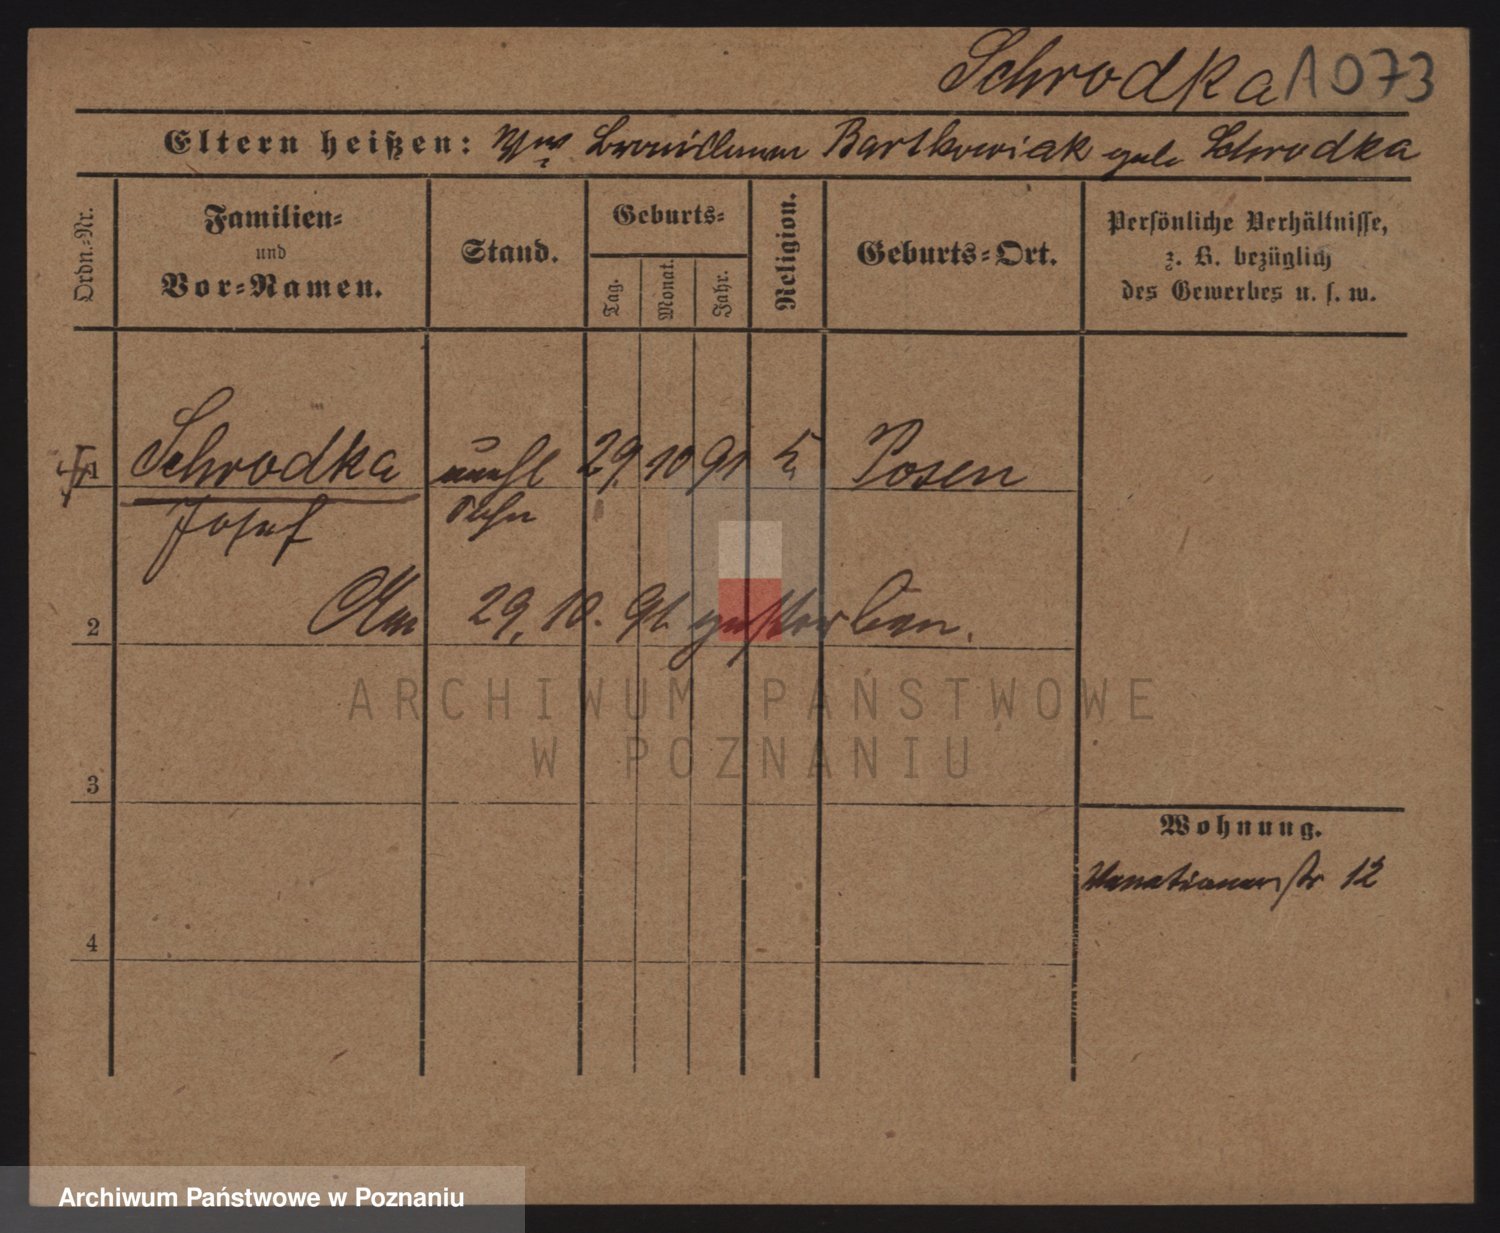 Schrodka 1073
Eltern heißen: Bartkowiak geb Schrodka
Ordn.-Nr.
Familien-
und
Vor-Namen.
Stand.
Geburts-
Tag.
Monat.
Jahr.
Religion.
Geburts-Ort.
Persönliche Verhältnisse,
z. B. bezüglich
des Gewerbes u. s. w.
1 Schrodka unehl 29. 10 91 k Posen
Josef Sohn
2 Am 29. 10. 91. gestorben.
ARCHIWUM PAŃSTWOWE
W POZNANIU
3
Wohnung.
Venetianerstr 12
4
Archiwum Państwowe w Poznaniu